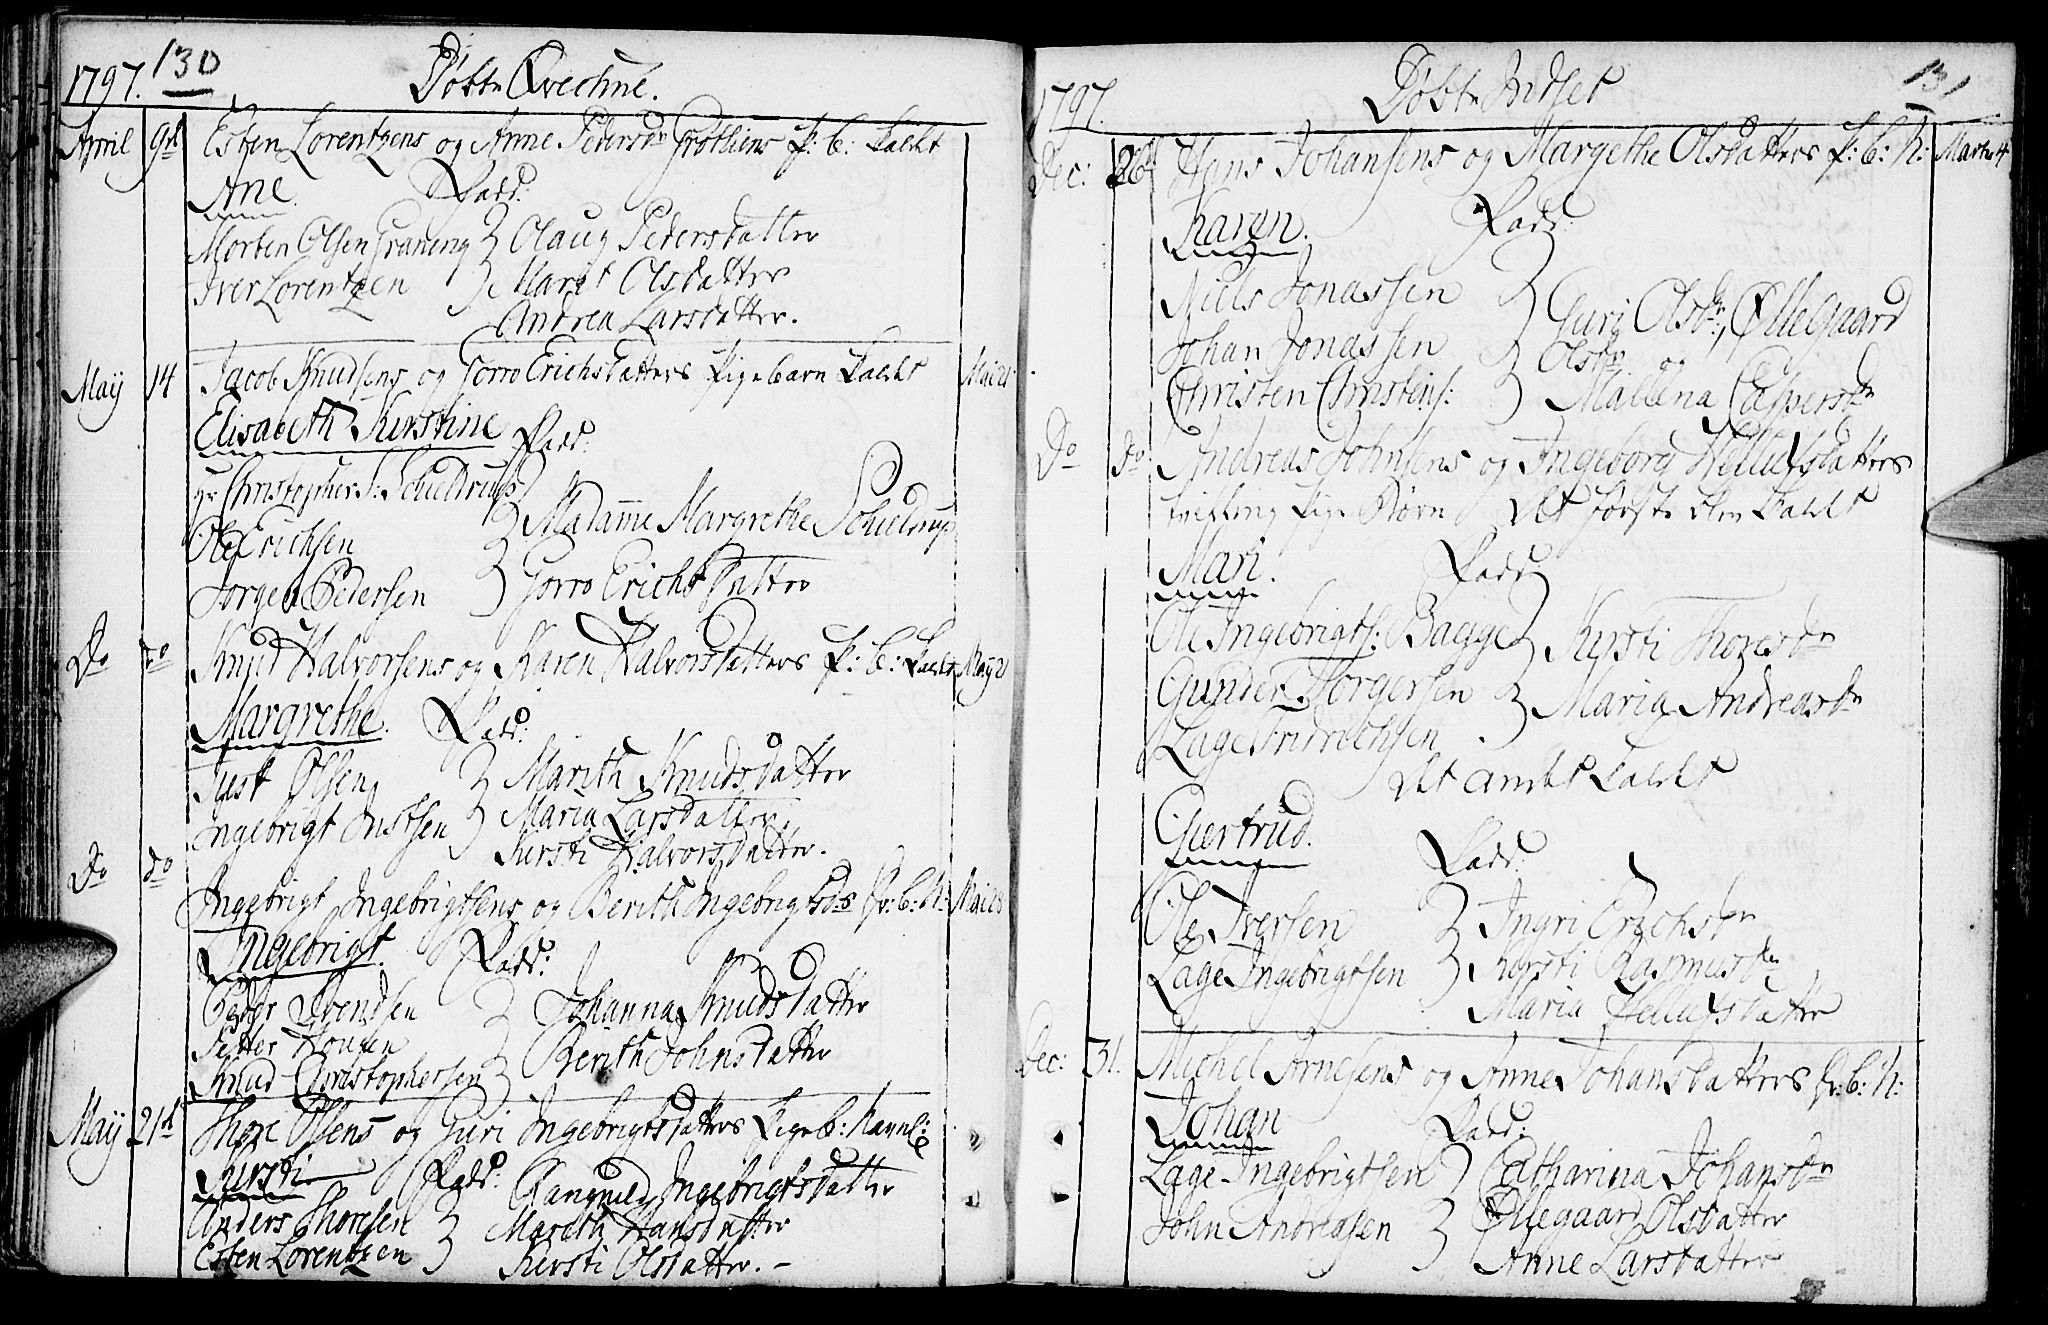 130
1797. Døbte Qvechne.
April 9de Esten Lorentzens og Anne Pedersdr Grøtliens P: B: kaldt
Ane. Fadd:
Morten Olsen Graneng Olaug Pedersdatter
Iver Lorentzen Marit Olsdatter
Andrea Larsdatter.
May 14 Jacob Knudsens og Gorro Erichsdatters Pigebarn kaldet Mai 21
Elisabeth Kirstine Fadd:
Hr Christopher S: Schieldrup
Madame Margrethe Schieldrup
Ole Erichsen
Jørgen Pedersen Gorro Erichsdatter
Do do Knud Halvorsens og Karen Halvorsdatters P: B: kaldet May 21
Margrethe. Fadd:
Just Olsen Marith Knudsdatter
Ingebrigt Justsen Maria Larsdatter
Kirsti Halvorsdatter.
Do do Ingebrigt Ingebrigtsens og Berith Ingebrigtsds Dr: B: N: Mai 28
Ingebrigt. Fadd:
Peder Svendsen Johanna Knudsdatter
Petter Hougen Berith Johnsdatter
Knud Christophersen
May 21de Thore Olsens og Guri Ingebrigtsdatters Pigeb: Navnl:
Kirsti Fadd: Rangnild Ingebrigtsdatter
Anders Thoresen Marith Hansdatter
Esten Lorentzen Kirsti Olsdatter.
131
1797. Døbte Indset
Dec: 26 Hans Johansens og Margethe Olsdatters P: B: N: Marts 4
Karen. Fadd:
Niels Jonassen Guri Olsdr, Øllegaard
Johan Jonassen Olsdr og
Christen Christens: Mallena Caspersdr
Do do Andreas Johnsens og Ingeborg Hellufsdatters
tvilling Pige Børn Det første blev kaldet
Mari. Fadd:
Ole Ingebrigts: Bagge Kirsti Thoresdr
Gunder Torgersen Maria Andreasdr
Lage Fridrichsen
Det andet kaldet
Giertrud. Fadd:
Ole Iversen Ingri Erichsdr
Lage Ingebrigtsen Kirsti Rasmusdr
Maria Hellufsdatter
Dec: 31. Michel Arnesens og Anne Johansdatters Dr: B: N:
Johan Fadd:
Lage Ingebrigtsen Catharina Johansdr
John Andreasen Øllegaard Olsdatter
Anne Larsdatter